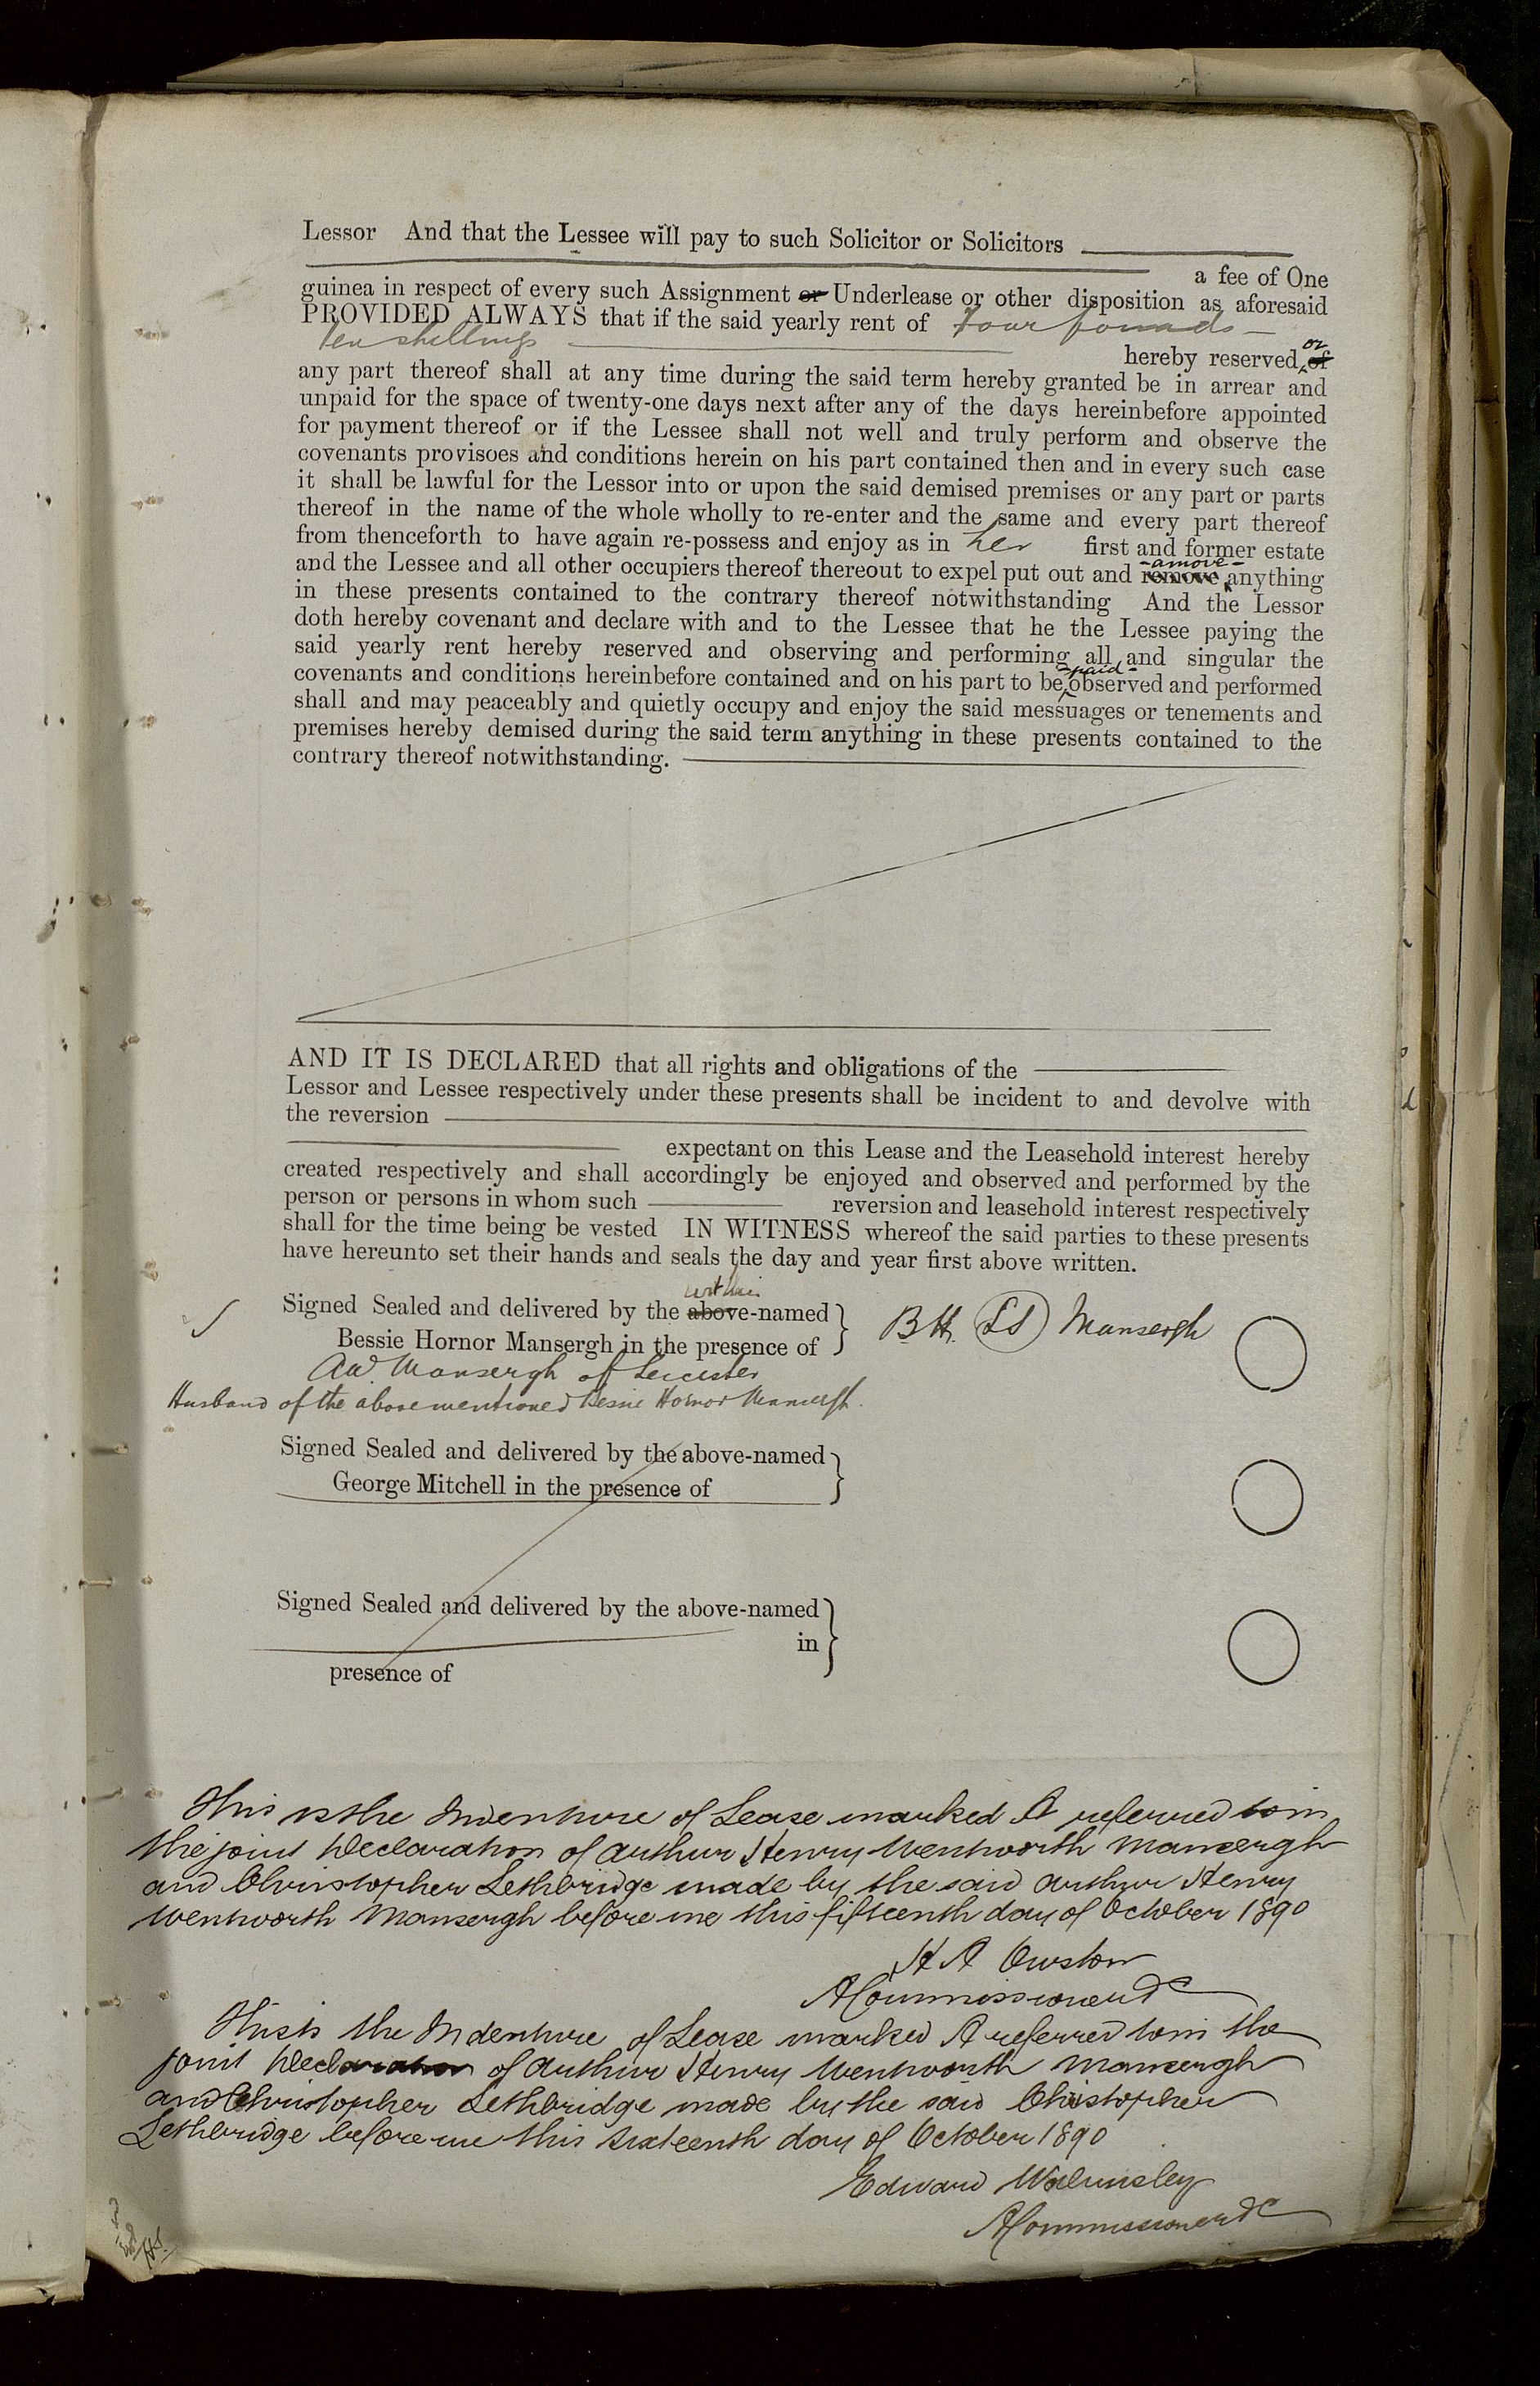 Lessor And that the Lessee will pay to such Solicitor or Solicitors
a fee of One
guinea in respect of every such Assignment or Underlease or other disposition as aforesaid
PROVIDED ALWAYS that if the said yearly rent of four pounds
ten shillings
hereby reserved or of
any part thereof shall at any time during the said term hereby granted be in arrear and
unpaid for the space of twenty-one days next after any of the days hereinbefore appointed
for payment thereof or if the Lessee shall not well and truly perform and observe the
covenants provisoes and conditions herein on his part contained then and in every such case
it shall be lawful for the Lessor into or upon the said demised premises or any part or parts
thereof in the name of the whole wholly to re-enter and the same and every part thereof
from thenceforth to have again re-possess and enjoy as in her first and former estate
and the Lessee and all other occupiers thereof thereout to expel put out and remove amove anything
in these presents contained to the contrary thereof notwithstanding And the Lessor
doth hereby covenant and declare with and to the Lessee that he the Lessee paying the
said yearly rent hereby reserved and observing and performing all and singular the
covenants and conditions hereinbefore contained and on his part to be paid observed and performed
shall and may peaceably and quietly occupy and enjoy the said messuages or tenements and
premises hereby demised during the said term anything in these presents contained to the
contrary thereof notwithstanding.
AND IT IS DECLARED that all rights and obligations of the
Lessor and Lessee respectively under these presents shall be incident to and devolve with
the reversion
expectant on this Lease and the Leasehold interest hereby
created respectively and shall accordingly be enjoyed and observed and performed by the
person or persons in whom such reversion and leasehold interest respectively
shall for the time being be vested IN WITNESS whereof the said parties to these presents
have hereunto set their hands and seals the day and year first above written.
within
Signed Sealed and delivered by the above-named
Bessie Hornor Mansergh in the presence of
B H. LS Mansergh
Mansergh of Leicester
Husband of the abovementioned Bessie Hornor Mansergh.
Signed Sealed and delivered by the above-named
George Mitchell in the presence of
Signed Sealed and delivered by the above-named
in
presence of
This is the Indenture of Lease marked A referred to in
the joint Declaration of Arthur Henry Wentworth Mansergh
and Christopher Lethbridge made by the said Arthur Henry
Wentworth Mansergh before me this fifteenth day of October 1890
H A Owston
A Commissioner &c
This is the Indenture of Lease marked A referred to in the
joint Declaration of Arthur Henry Wentworth Mansergh
and Christopher Lethbridge made by the said Christopher
Lethbridge before me this sixteenth day of October 1890
Edward Walmsley
A Commissioner &c